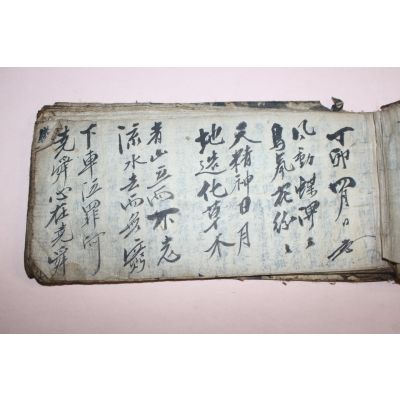 丁卯 四月 日
風動蝶
鳥
天精神日月
地造化草木
青山立而不老
流水去而無窮
下車泣罪何
堯舜心在堯舜